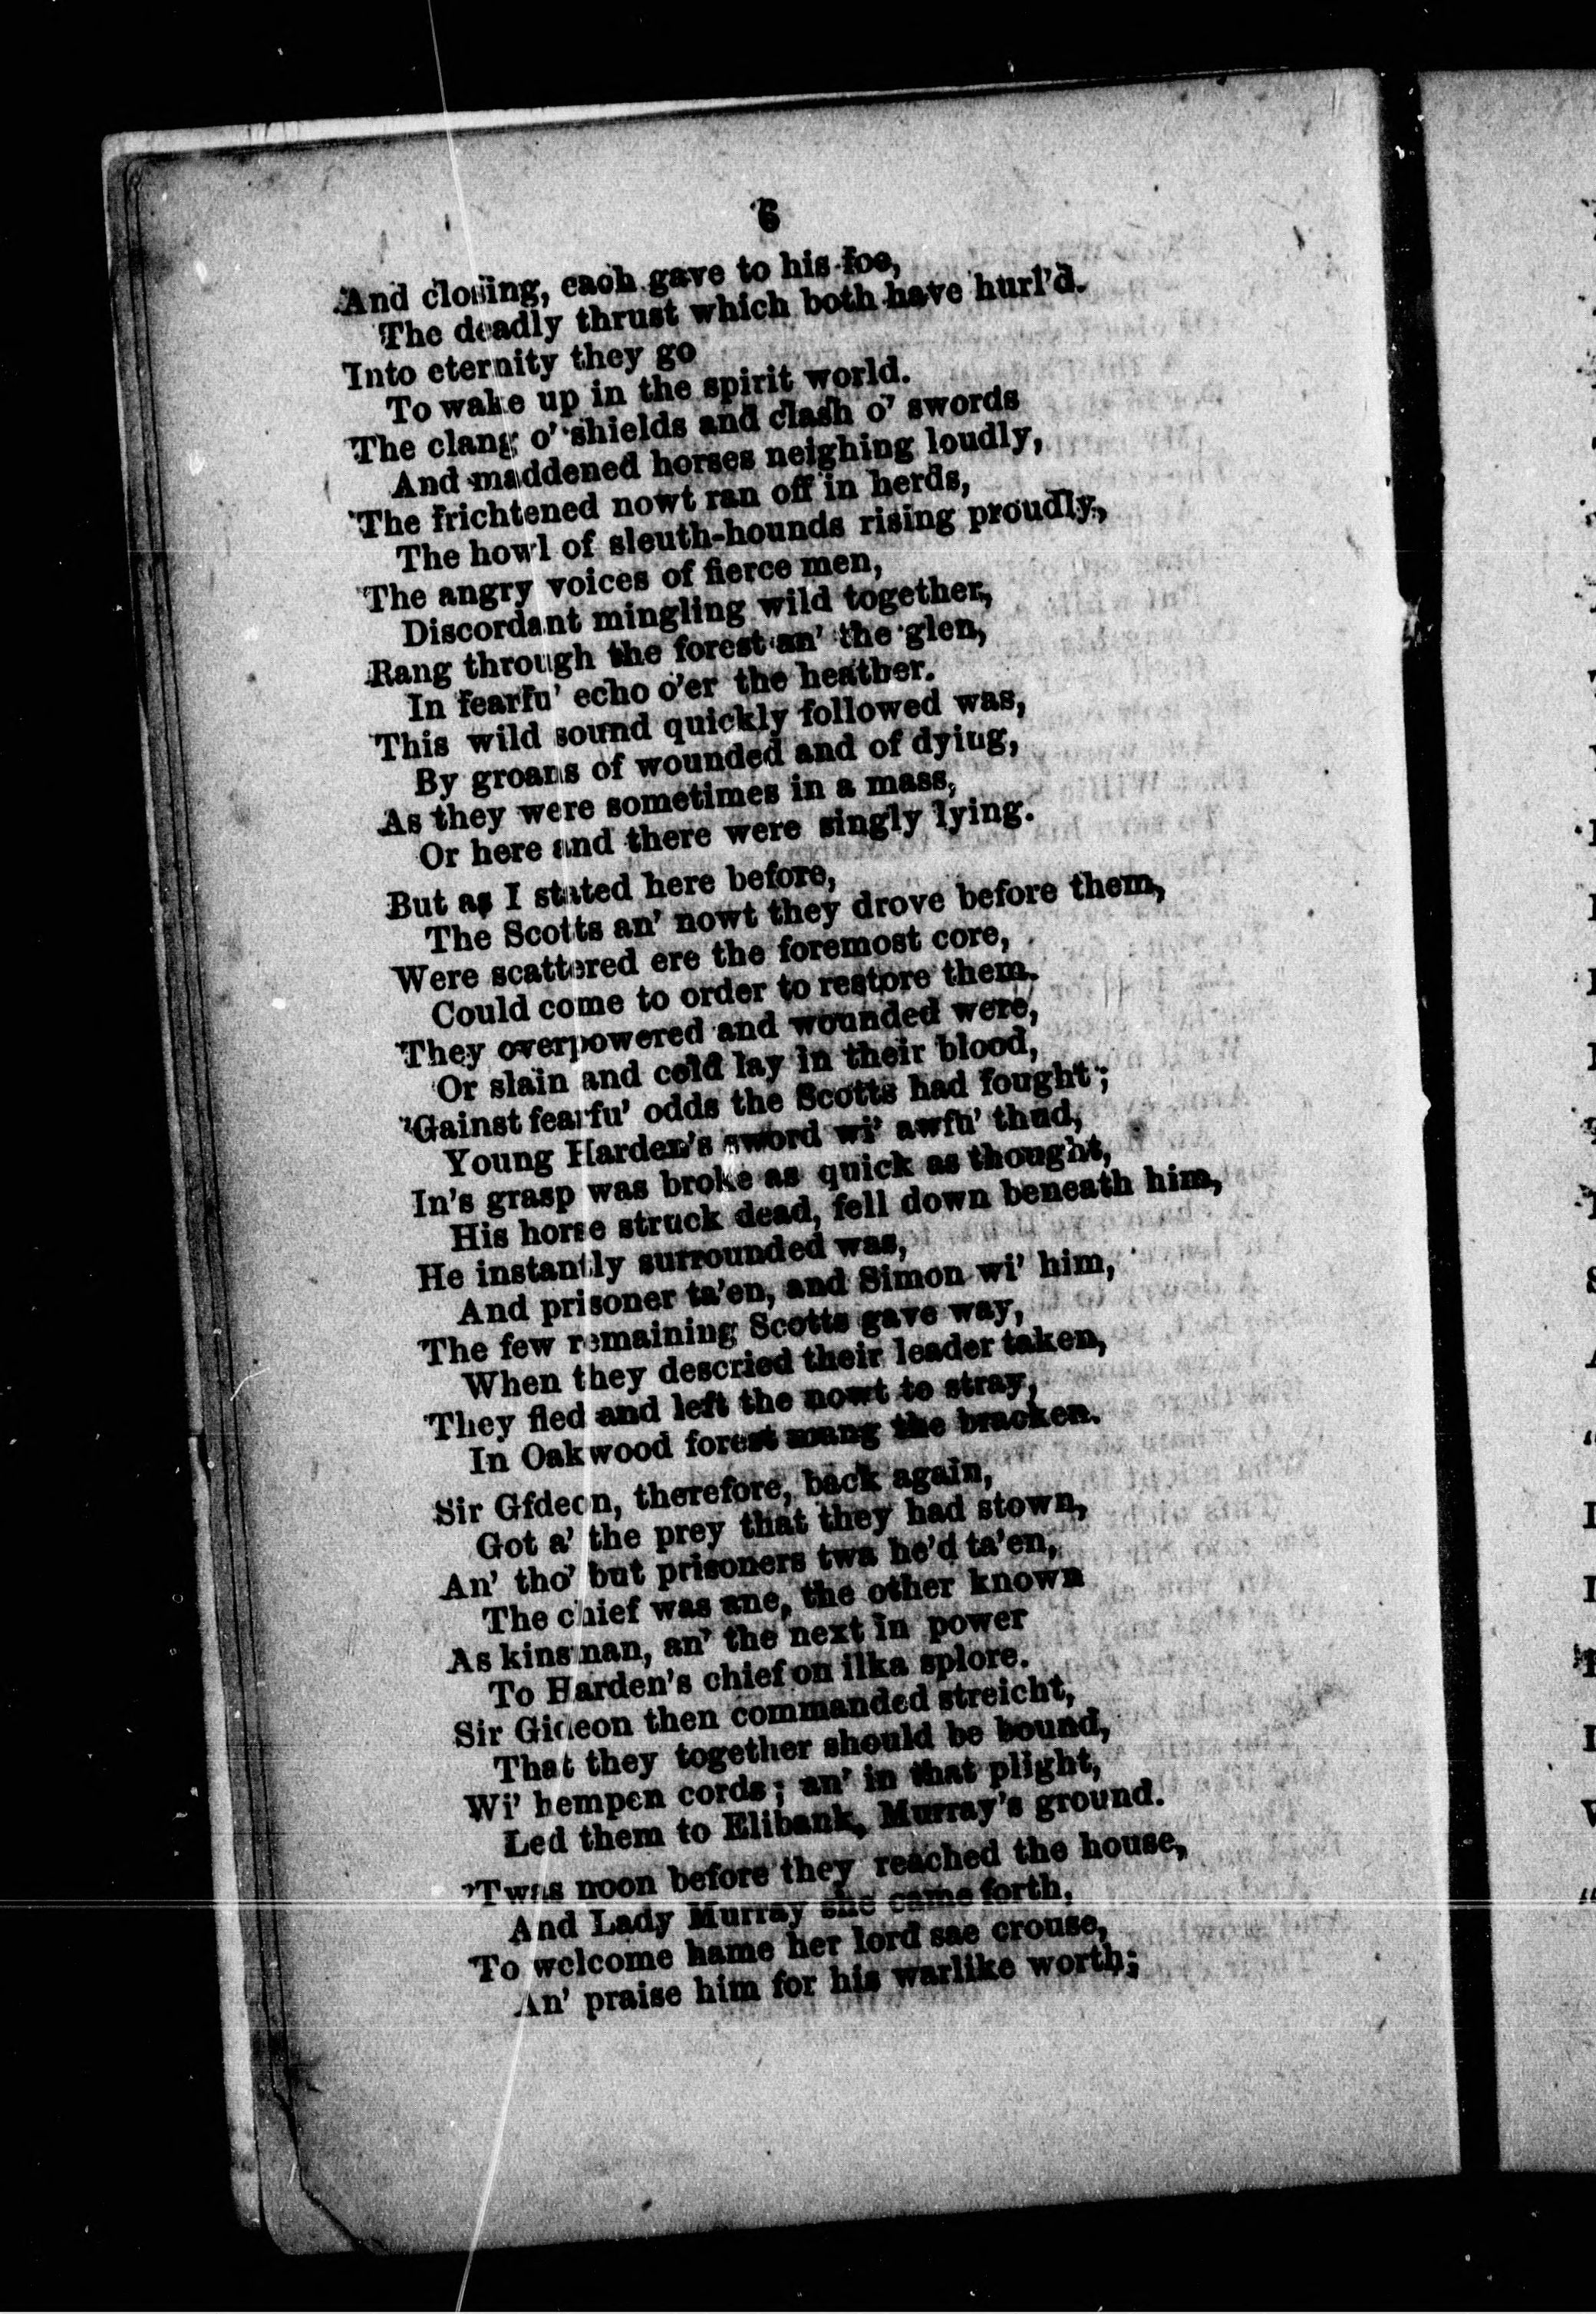 6
And closing, each gave to his foe,
The deadly thrust which both have hurl'd.
Into eternity they go
To wake up in the spirit world.
The clang o' shields and clash o' swords
And maddened horses neighing loudly,
The frichtened nowt ran off in herds,
The howl of sleuth-hounds rising proudly,
The angry voices of fierce men,
Discordant mingling wild together,
Rang through the forest an' the glen,
In fearfu' echo o'er the heather.
This wild sound quickly followed was,
By groans of wounded and of dying,
As they were sometimes in a mass,
Or here and there were singly lying.
But as I stated here before,
The Scotts an' nowt they drove before them,
Were scattered ere the foremost core,
Could come to order to restore them.
They overpowered and wounded were,
Or slain and cold lay in their blood,
'Gainst fearfu' odds the Scotts had fought;
Young Harden's sword wi' awfu' thud,
In's grasp was broke as quick as thought,
His horse struck dead, fell down beneath him,
He instantly surrounded was,
And prisoner ta'en, and Simon wi' him,
The few remaining Scotts gave way,
When they descried their leader taken,
They fled and left the nowt to stray,
In Oakwood forest mang the bracken.
Sir Gfdeon, therefore, back again,
Got a' the prey that they had stown,
An' tho' but prisoners twa he'd ta'en,
The chief was ane, the other known
As kinsman, an' the next in power
To Harden's chief on ilka splore.
Sir Gideon then commanded streicht,
That they together should be bound,
Wi' hempen cords; an' in that plight,
Led them to Elibank, Murray's ground.
'Twas noon before they reached the house,
And Lady Murray she came forth,
To welcome hame her lord sae crouse,
An' praise him for his warlike worth;